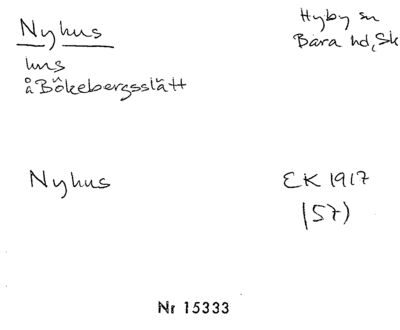 Nyhus
Hyby sn
Bara hd, Sk
hus
å Bökebergsslätt
Nyhus
EK 1917
(57)
Nr 15333